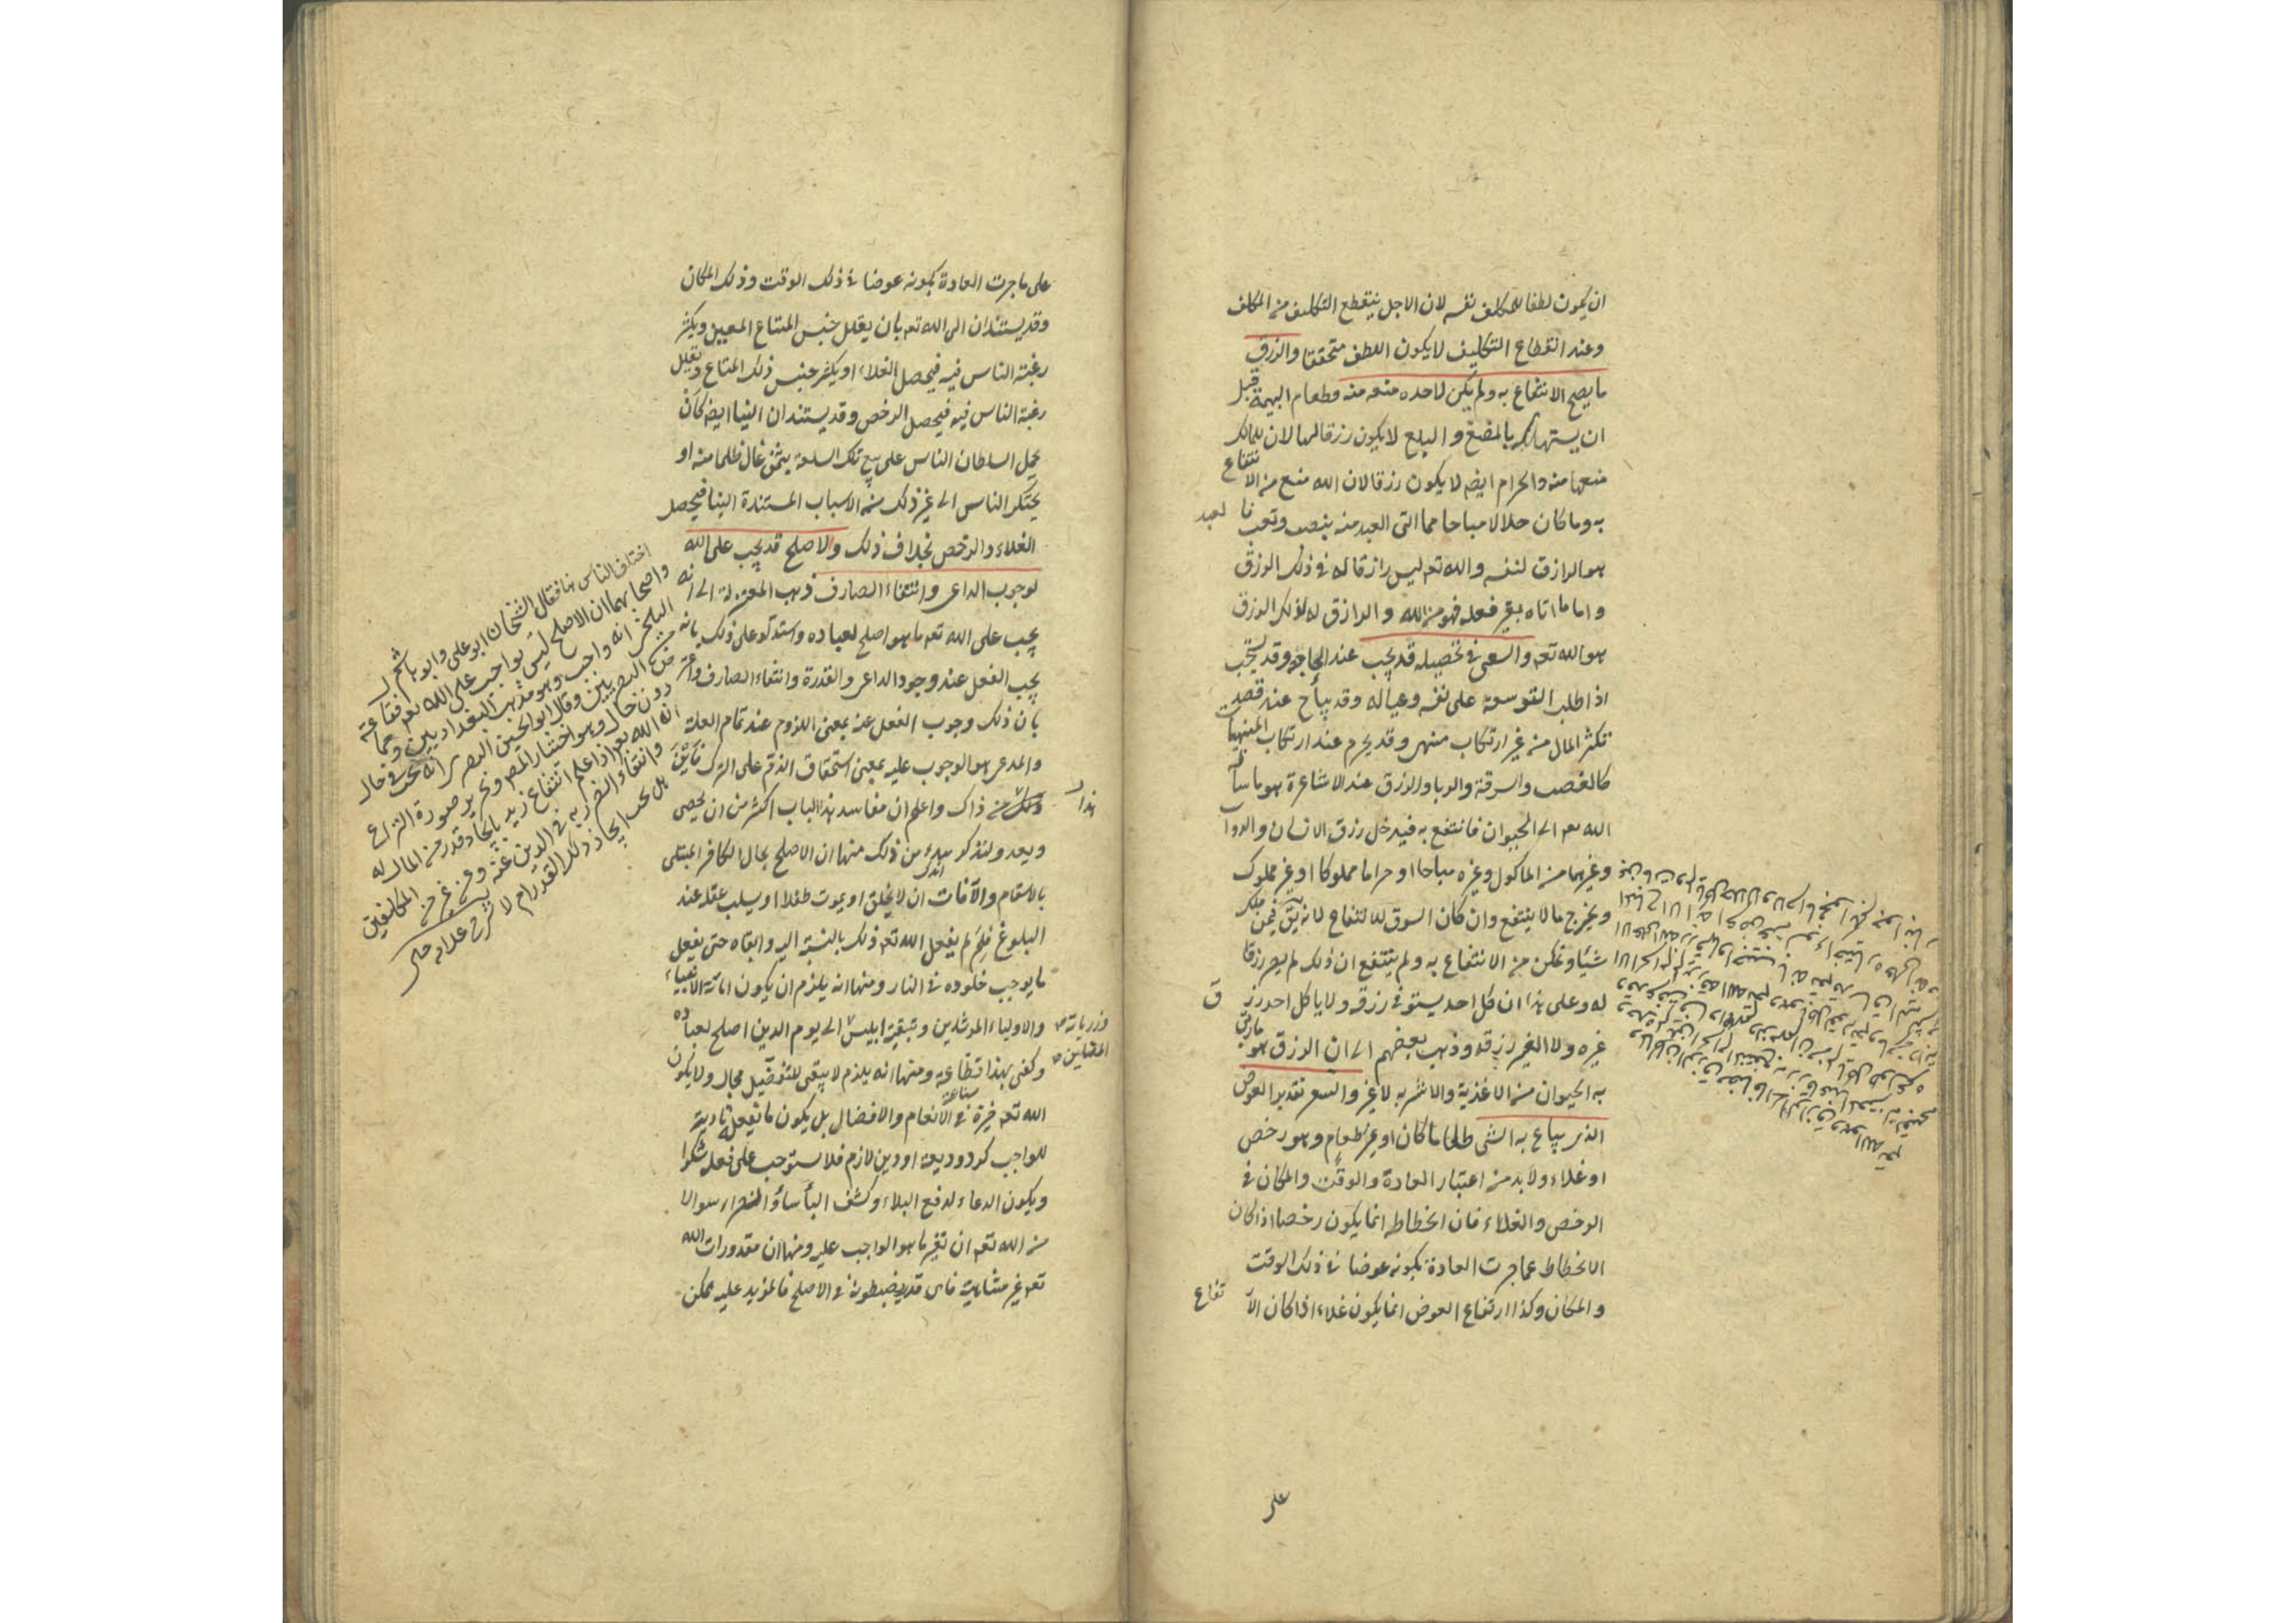 ان يكون لطفا للمكلف نفسه لان الاجل ينقطع التكليف من المكلف
وعند انقطاع التكليف لا يكون اللطف متحققا والرزق
ما يصح الانتفاع به ولم يكن لاحد منعه منه وطعام البهيمة قبل
ان يستهلكه بالمضغ والبلع لا يكون رزقا لها لان للمالك
منعها منه والحرام ايضا لا يكون رزقا لان الله منع من الانتفاع
به وما كان حلالا مباحا مما التى العبد منه بنصب وتعب فالعبد
هو الرازق لنفسه والله تعه ليس رازقا له فى ذلك الرزق
واما ما اتاه بغير فعله فهو من الله والرازق له لذلك الرزق
هو الله تعه والسعى فى تحصيله قد يجب عند الحاجة وقد يستحب
اذا طلب التوسعة على نفسه وعياله وقد يباح عند قصد
تكثر المال من غير ارتكاب منهى وقد يحرم عند ارتكاب المنهيات
كالغصب والسرقة والربا والرزق عند الاشاعرة هو ما ساق
الله تعه الى الحيوان فانتفع به فيدخل رزق الانسان والدواب
وغيرهما من المأكول وغيره مباحا او حراما مملوكا او غير مملوك
ويخرج ما لا ينتفع وان كان السوق للانتفاع لانه يق فيمن ملك
شيئا وتمكن من الانتفاع به ولم ينتفع ان ذلك لم يصر رزقا
له وعلى هذا ان كل احد يستوفى رزقه ولا يأكل احد رزق
غيره ولا الغير رزقه وذهب بعضهم الى ان الرزق هو ما يربى
به الحيوان من الاغذية والاشربه لا غير والسعر تقدير العوض
الذى يباع به الشى طعاما كان او غير طعام وهو رخص
او غلاء ولا بد من اعتبار العادة والوقت والمكان فى
الرخص والغلاء فان انحطاطه انما يكون رخصا اذا كان
الانحطاط عما جرت العادة بكونه عوضا فى ذلك الوقت
والمكان وكذا ارتفاع العوض انما يكون غلاء اذا كان الارتفاع
على
على ما جرت العادة بكونه عوضا فى ذلك الوقت وذلك المكان
وقد يستندان الى الله تعه بان يقلل جنس المتاع المعين ويكثر
رغبة الناس فيه فيحصل الغلاء او يكثر جنس ذلك المتاع وتقليل
رغبة الناس فيه فيحصل الرخص وقد يستندان الينا ايضا كان
يحمل السلطان الناس على بيع تلك السلعة بثمن غال ظلما منه او
يحتكر الناس الى غير ذلك من الاسباب المستندة الينا فيحصل
الغلاء والرخص بخلاف ذلك والاصلح قد يجب على الله
لوجوب الداعى وانتفاء الصارف ذهب المعتزلة الى انه
يجب على الله تعه ما هو اصلح لعباده واستدلو على ذلك بانه
يجب الفعل عند وجود الداعى والقدرة وانتفاء الصارف
بان ذلك وجوب الفعل عنه بمعنى اللزوم عند تمام العلة
والمدعى هو الوجوب عليه بمعنى استحقاق الذم على الترك فاين
هذا من ذاك واعلم ان مفاسد هذا الباب اكثر من ان يحصى
ويعد ولنذكر نبذا من ذلك منها ان الاصلح بحال الكافر المبتلى
بالاسقام والآفات ان لا يخلق او يموت طفلا او يسلب عقله عند
البلوغ فلم لم يفعل الله تعه ذلك بالنسبة اليه وابقاه حتى يفعل
ما يوجب خلوده فى النار ومنها انه يلزم ان يكون اماتة الانبياء
والاولياء المرشدين وتبقية ابليس الى يوم الدين اصلح لعباده
وكفى بهذا فظاعة ومنها انه يلزم لا يبقى للتفضيل مجال ولا يكون
الله تعه خيرة فى الانعام والافضال بل يكون ما يفعله تأدية
للواجب كرد وديعة او دين لازم فلا يستوجب على فعله شكرا
ويكون الدعاء لدفع البلاء وكشف البأساء والضراء سوالا
من الله تعه ان تغير ما هو الواجب عليه ومنها ان مقدورات الله
تعه غير متناهية فاى قدر يضبطونه فى الاصلح فالمزيد عليه ممكن
وذرياته
المضلين
اختلف الناس هنا فقال الشيخان ابو على وابو هاشم
واصحابهما ان الاصلح ليس بواجب على الله تعه
البلخى انه واجب وهو مذهب البغداديين
من البصريين وقال ابو الحسين البصرى انه يجب فى حال
دون حال وهو اختيار المص وتحرير صورة النزاع
انه الله تعه اذا علم انتفاع زيد بايجاد قدر من المال له
وانتفاء الضرر به فى الدين عنه وعن غيره من المكلفين
هل يجب ايجاد ذلك القدر ام لا شرح علامه حلى